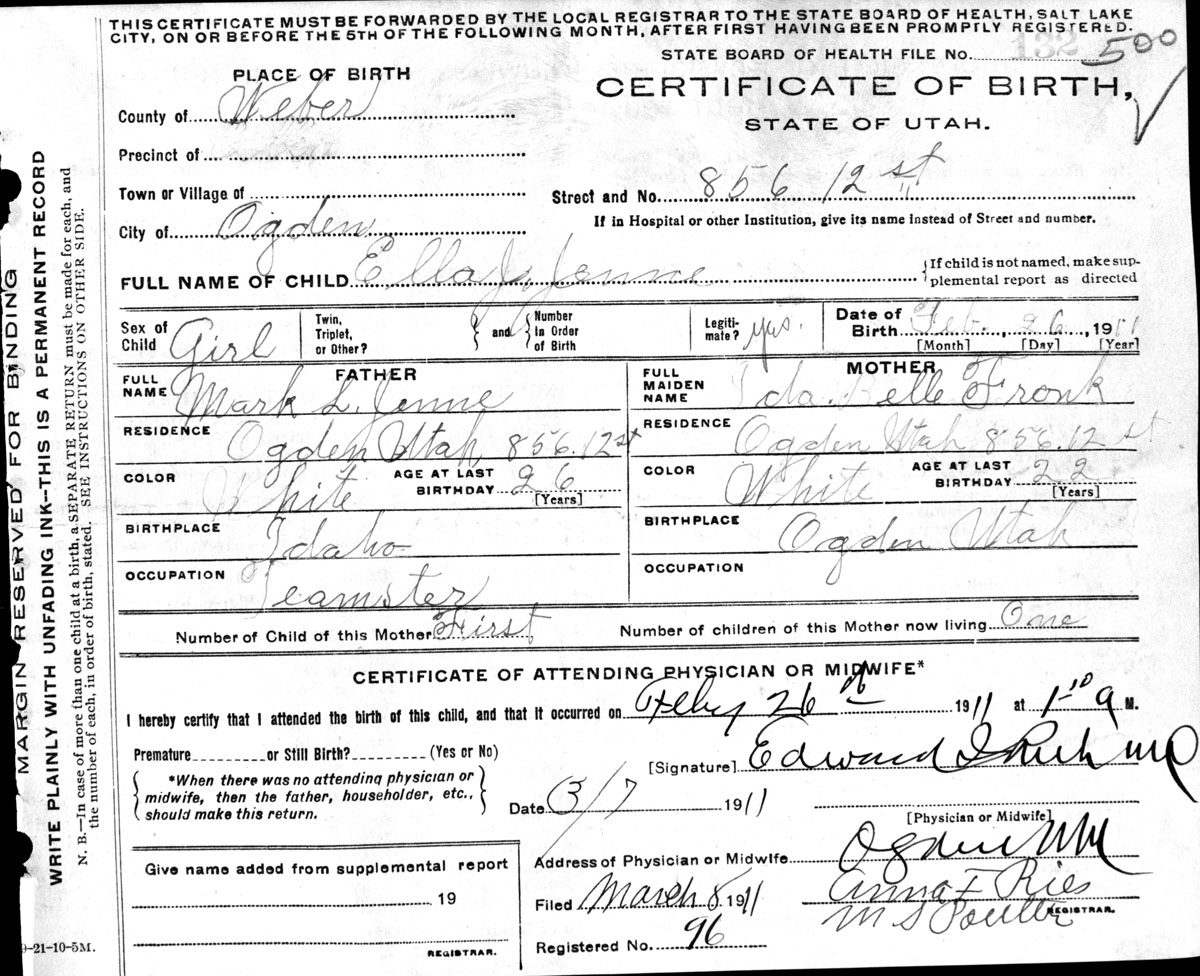 THIS CERTIFICATE MUST BE FORWARDED BY THE LOCAL REGISTRAR TO THE STATE BOARD OF HEALTH, SALT LAKE
CITY, ON OR BEFORE THE 5TH OF THE FOLLOWING MONTH, AFTER FIRST HAVING BEEN PROMPTLY REGISTERED.
STATE BOARD OF HEALTH FILE No. 132 500
PLACE OF BIRTH
CERTIFICATE OF BIRTH,
STATE OF UTAH.
County of Weber
Precinct of
Town or Village of
Street and No. 856 12 st
City of Ogden
If in Hospital or other Institution, give its name instead of Street and number.
FULL NAME OF CHILD Ella J. Jenne
{If child is not named, make sup-
plemental report as directed
Sex of Child Girl
Twin, Triplet, or Other?
and
Number In Order of Birth
Legiti-mate? yes.
Date of Birth Feb. 26, 1911
[Month] [Day] [Year]
FATHER
FULL NAME Mark L. Jenne
RESIDENCE Ogden Utah 856. 12 st
COLOR White
AGE AT LAST BIRTHDAY 26
[Years]
BIRTHPLACE Idaho
OCCUPATION Teamster
MOTHER
FULL MAIDEN NAME Ida. Belle Fronk
RESIDENCE Ogden Utah 856. 12 st
COLOR White
AGE AT LAST BIRTHDAY 22
(Years)
BIRTHPLACE Ogden Utah
OCCUPATION
Number of Child of this Mother First
Number of children of this Mother now living One
CERTIFICATE OF ATTENDING PHYSICIAN OR MIDWIFE*
I hereby certify that I attended the birth of this child, and that it occurred on Feby 26 th 1911 at 1 10 a M.
Premature or Still Birth? (Yes or No)
[Signature] Edward I Rich MD
*When there was no attending physician or
midwife, then the father, householder, etc.,
should make this return.
Date 3/7 1911
[Physician or Midwife]
Address of Physician or Midwife Ogden
Give name added from supplemental report
19
REGISTRAR.
Filed March 8 1911
Emma F Ries
M S Poulter
REGISTRAR.
Registered No. 96
9-21-10-5M.
MARGIN RESERVED FOR BINDING
WRITE PLAINLY WITH UNFADING INK--THIS IS A PERMANENT RECORD
N. B.—In case of more than one child at a birth, a SEPARATE RETURN must be made for each, and
the number of each, in order of birth, stated. SEE INSTRUCTIONS ON OTHER SIDE.